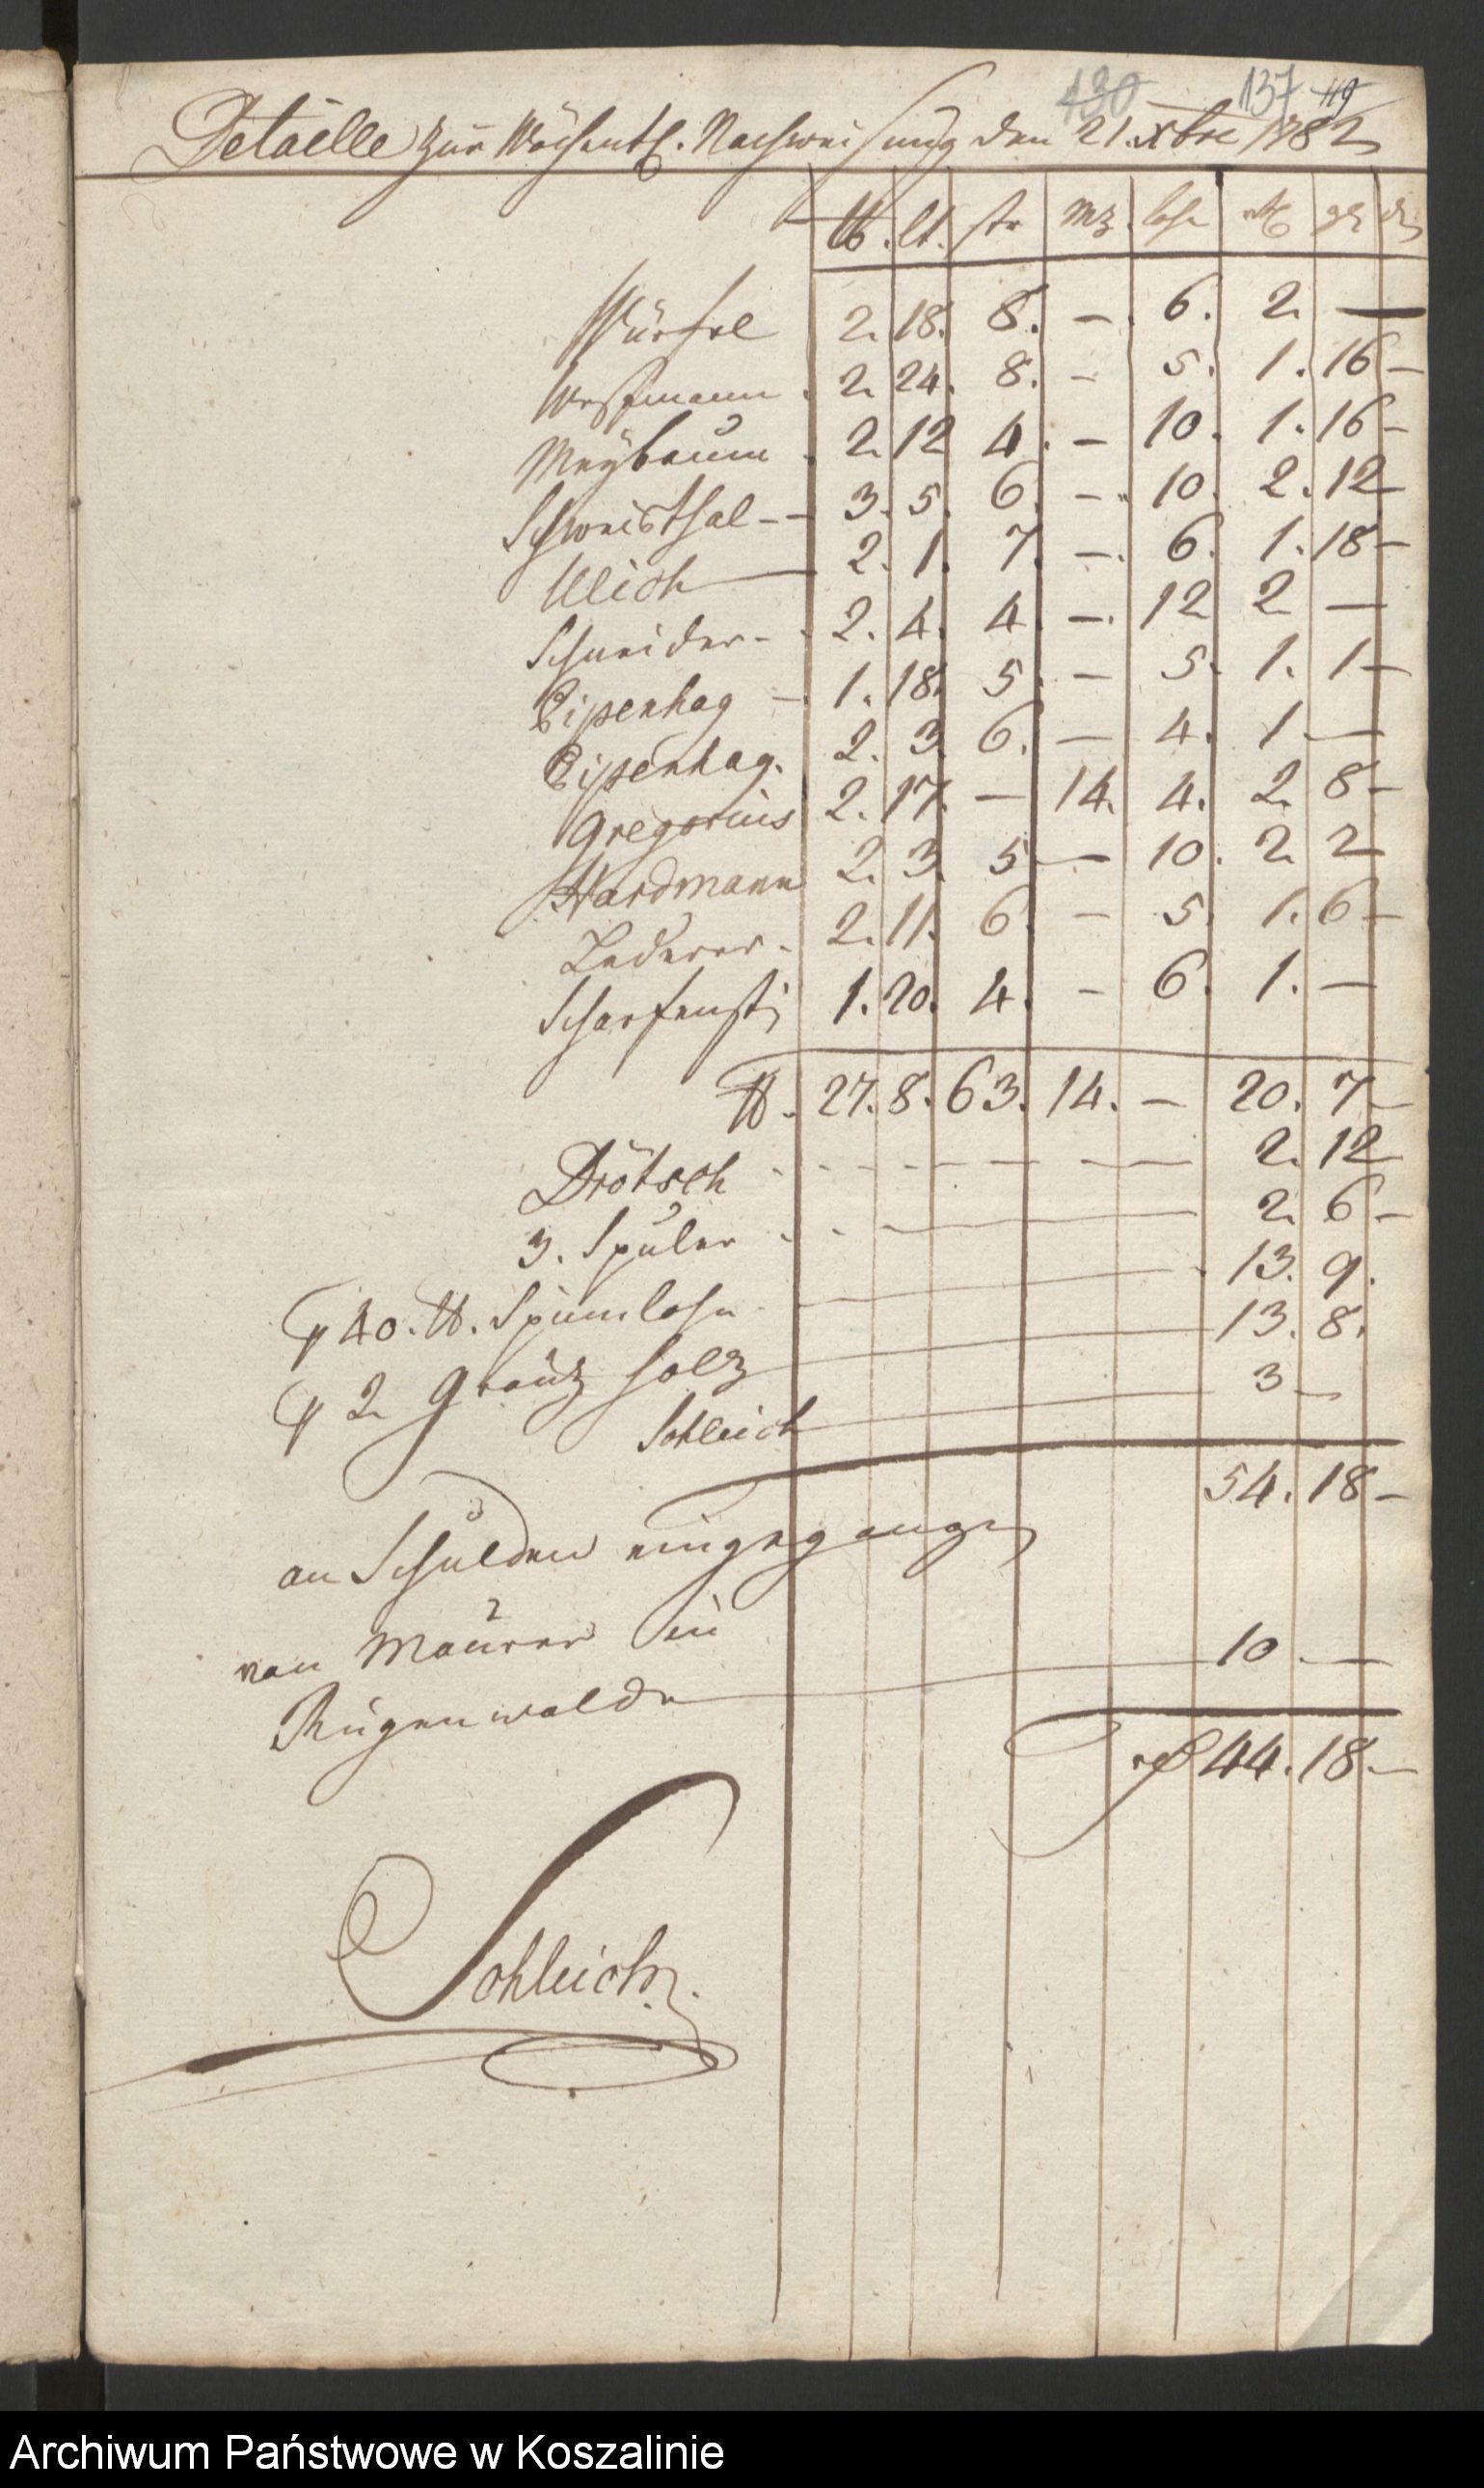 130 137 119
Detaille zur Wöchentl. Nachweisung den 21. Xbre 1782
℔. lt. str mz. lohn rtl gl d
Würfel 2. 18. 8. —. 6. 2. —
Westmann. 2. 24. 8. — 5. 1. 16 —
Meÿbaum. 2. 12 4. — 10. 1. 16 —
Schweisthal — 3. 5. 6. —. 10. 2. 12
Ulich — 2. 1. 7. —. 6. 1. 18 —
Schneider - . 2. 4. 4. —. 12 2 —
Pipenhag — 1. 18. 5. — 5. 1. 1 —
Pipenhag. 2. 3. 6. — 4. 1 —
Gregorius 2. 17. — 14. 4. 2. 8 —
Hardmann 2. 3. 5 — 10. 2. 2
Lederer. 2. 11. 6. — 5. 1. 6 —
Scharfensti 1. 20. 4. — 6. 1. —
℔. 27. 8. 63. 14. — 20. 7 —
Drötsch 2. 12
3. Spuler 2. 6 —
p 40. ℔. Spinnlohn 13. 9.
p 2 holz 13. 8.
Schleich 3 —
54. 18 —
an Schulden eingegangen
von Maurer in
Rügenwalde 10 —
rtl 44. 18. —
Schleich.
Archiwum Państwowe w Koszalinie